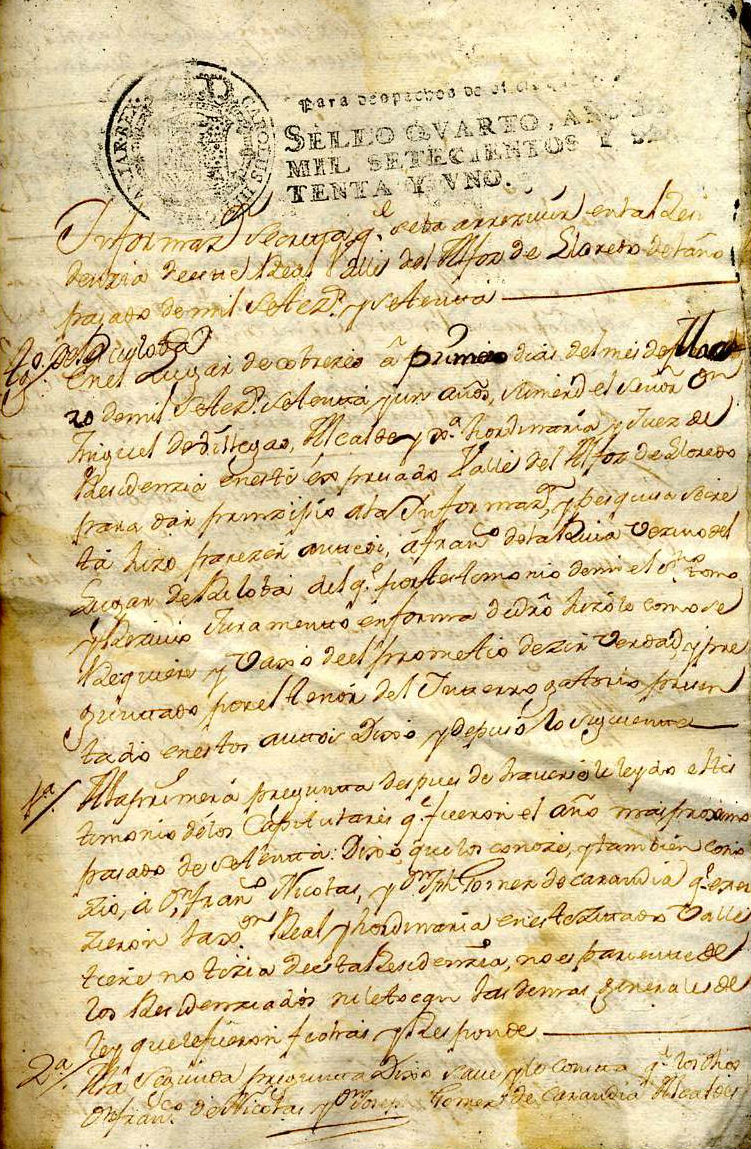 CAROLUS III
Para despachos de oficio
SELLO QVARTO, AÑO DE
MIL SETECIENTOS Y SE
TENTA Y VNO.
Informaz secreta q.e seba a rrezivir en la Resi
denzia de este Real Valle del Alfoz de Lloredo del año
pasado de mil setez.s y setenta
En el Lugar de cobrezes â primero dias del mes de Mar
zo de mil setez.s setenta y un años, su merd el señor Dn
Miguel de Villegas, Alcalde y xª. hordinaria y Juez de
Residenzia en este expresado Valle del Alfoz de Lloredo
para dar prinzipio a la Informaz.n y pesquisa secre
ta hizo parezer ante si, â fran.co de la Vezino del
Lugar de del q.e por testimonio de mi el ess.no tomo
y Rezivio Juramento en forma de dro hizolo como se
Requiere y vaxo de el prometio dezir Verdad, y pre
guntado por el tenor del Interrogatorio presen
tado en estos autos Dixo y depuso lo siguiente
1.a/ A la primera pregunta despues de haversele leydo el tes
timonio de los Capitulares q.e fueron el año mas proximo
pasado de setenta: Dixo que los conoze, y tambien cono
zio, â Dn fran.co Nicolas, y Dn Jph Gomez de carandia q.e exer
zieron la xn Real y hordinaria en este zitado Valle
tiene notizia de esta Residenzia, no es pariente de
los Residenziados ni le tocan las demas generales de
ley que le fueron fechas y Responde
2.a/ A la segunda pregunta Dixo save y le consta q.e los dhos
Dn fran.co de Nicolas y Dn Joseph Gomez de carandia Alcaldes